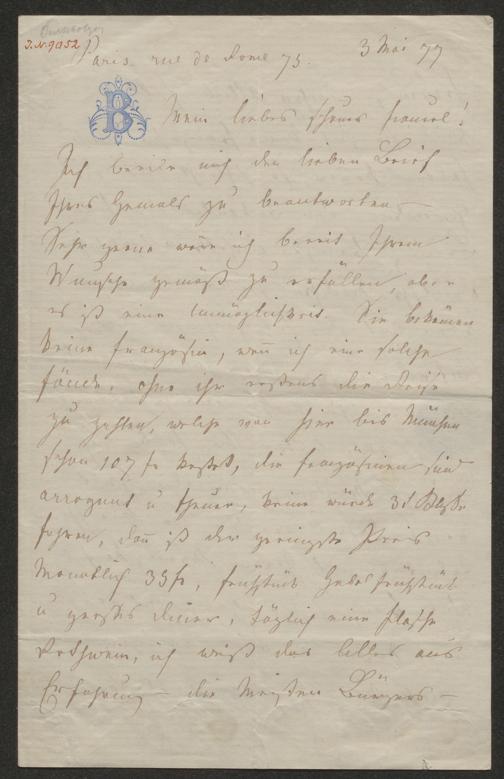 J.N. 9052
Paris rue de Rome 75. 3 Mai 77
B
Mein liebes theures
Ich beeile mich den lieben Brief
Ihres Gemals zu beantworten –
Sehr gerne wäre ich bereit Ihrem
Wunsche gemäß zu erfüllen, aber
es ist eine Unmöglichkeit. Sie bekämen
keine französin, wenn ich eine solche
fände, ohne ihr erstens die Reise
zu zahlen, welche von hier bis München
schon 107 fr kostet, die französinen sind
arrogant u theuer, keine würde 3t Classe
fahren, dann ist der geringste Preis
Monatlich 35 fr, frühstük
u großes Diner, täglich eine flasche
Rothwein, ich weiß das Alles aus
Erfahrung – die Meisten Bürgers –